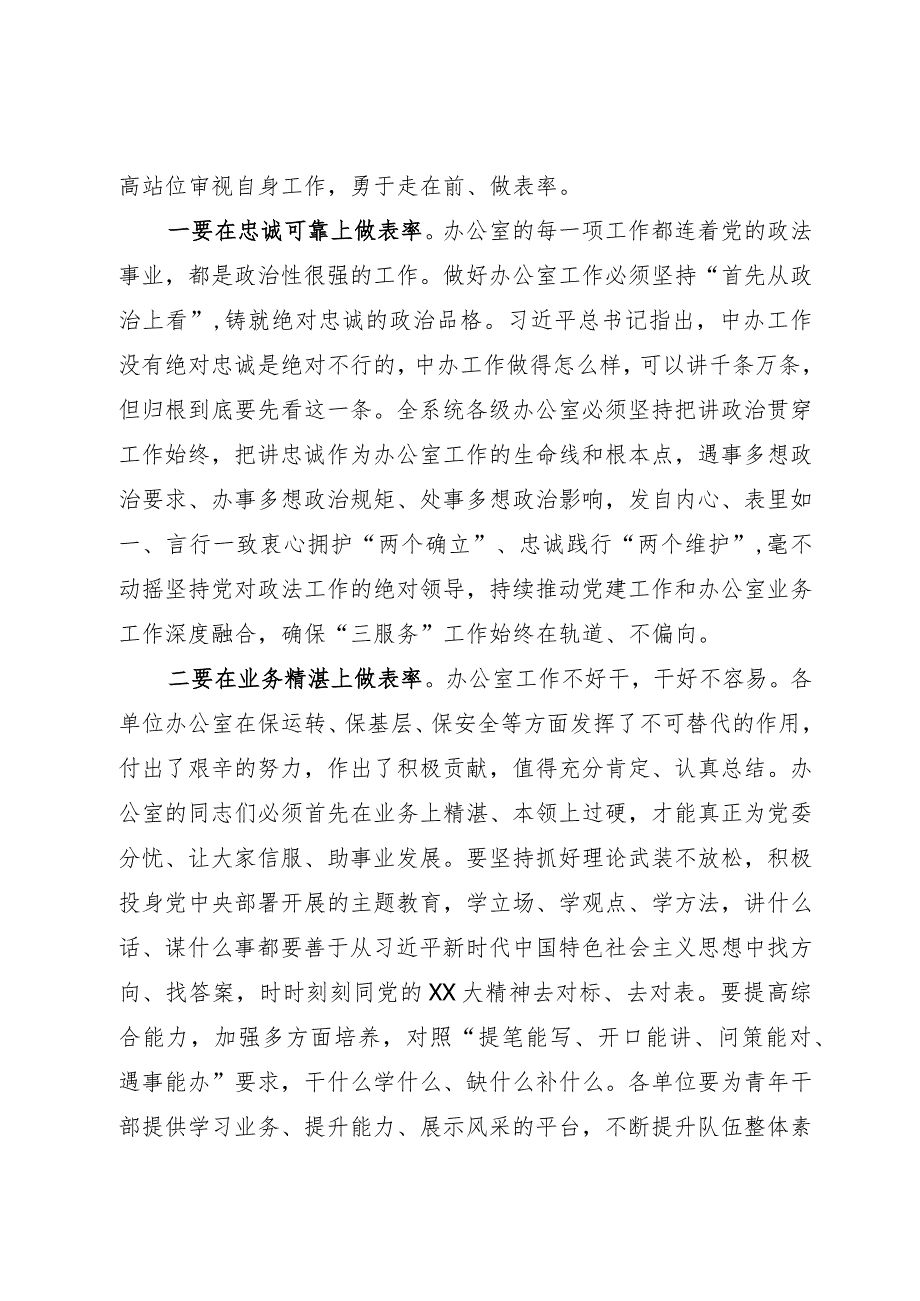 高站位审视自身工作，勇于走在前、做表率。
一要在忠诚可靠上做表率。办公室的每一项工作都连着党的政法
事业，都是政治性很强的工作。做好办公室工作必须坚持“首先从政
治上看”,铸就绝对忠诚的政治品格。习近平总书记指出，中办工作
没有绝对忠诚是绝对不行的，中办工作做得怎么样，可以讲千条万条，
但归根到底要先看这一条。全系统各级办公室必须坚持把讲政治贯穿
工作始终，把讲忠诚作为办公室工作的生命线和根本点，遇事多想政
治要求、办事多想政治规矩、处事多想政治影响，发自内心、表里如
一、言行一致衷心拥护“两个确立”、忠诚践行“两个维护”,毫不
动摇坚持党对政法工作的绝对领导，持续推动党建工作和办公室业务
工作深度融合，确保“三服务”工作始终在轨道、不偏向。
二要在业务精湛上做表率。办公室工作不好干，干好不容易。各
单位办公室在保运转、保基层、保安全等方面发挥了不可替代的作用，
付出了艰辛的努力，作出了积极贡献，值得充分肯定、认真总结。办
公室的同志们必须首先在业务上精湛、本领上过硬，才能真正为党委
分忧、让大家信服、助事业发展。要坚持抓好理论武装不放松，积极
投身党中央部署开展的主题教育，学立场、学观点、学方法，讲什么
话、谋什么事都要善于从习近平新时代中国特色社会主义思想中找方
向、找答案，时时刻刻同党的 XX 大精神去对标、去对表。要提高综
合能力，加强多方面培养，对照“提笔能写、开口能讲、问策能对、
遇事能办”要求，干什么学什么、缺什么补什么。各单位要为青年干
部提供学习业务、提升能力、展示风采的平台，不断提升队伍整体素